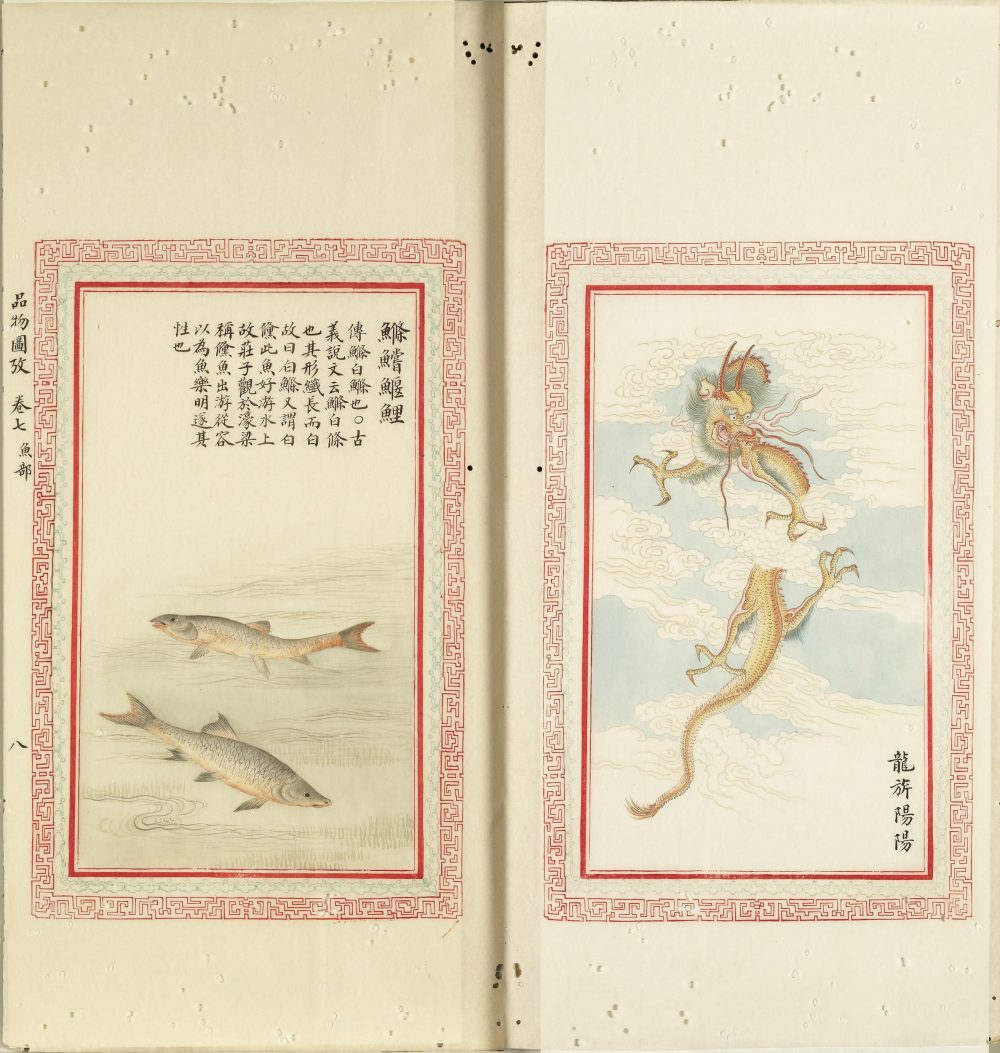 龍旂陽陽
鰷鱨鰋鯉
傳鰷白鰷也○古
義說文云鰷白條
也其形纖長而白
故曰白鰷又謂白
鯈此魚好游水上
故莊子觀於濠梁
稱鯈魚出游從容
以為魚樂明遂其
性也
品物圖攷 卷七 魚部
八